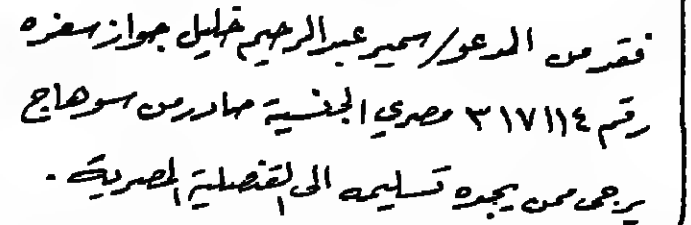 فقد من المدعو/سمير عبدالرحيم خليل جواز سفره
رقم ٣١٧١١٤ مصري الجنسية صادر من سوهاج
يرجى ممن يجده تسليمه الى القنصلية المصرية .